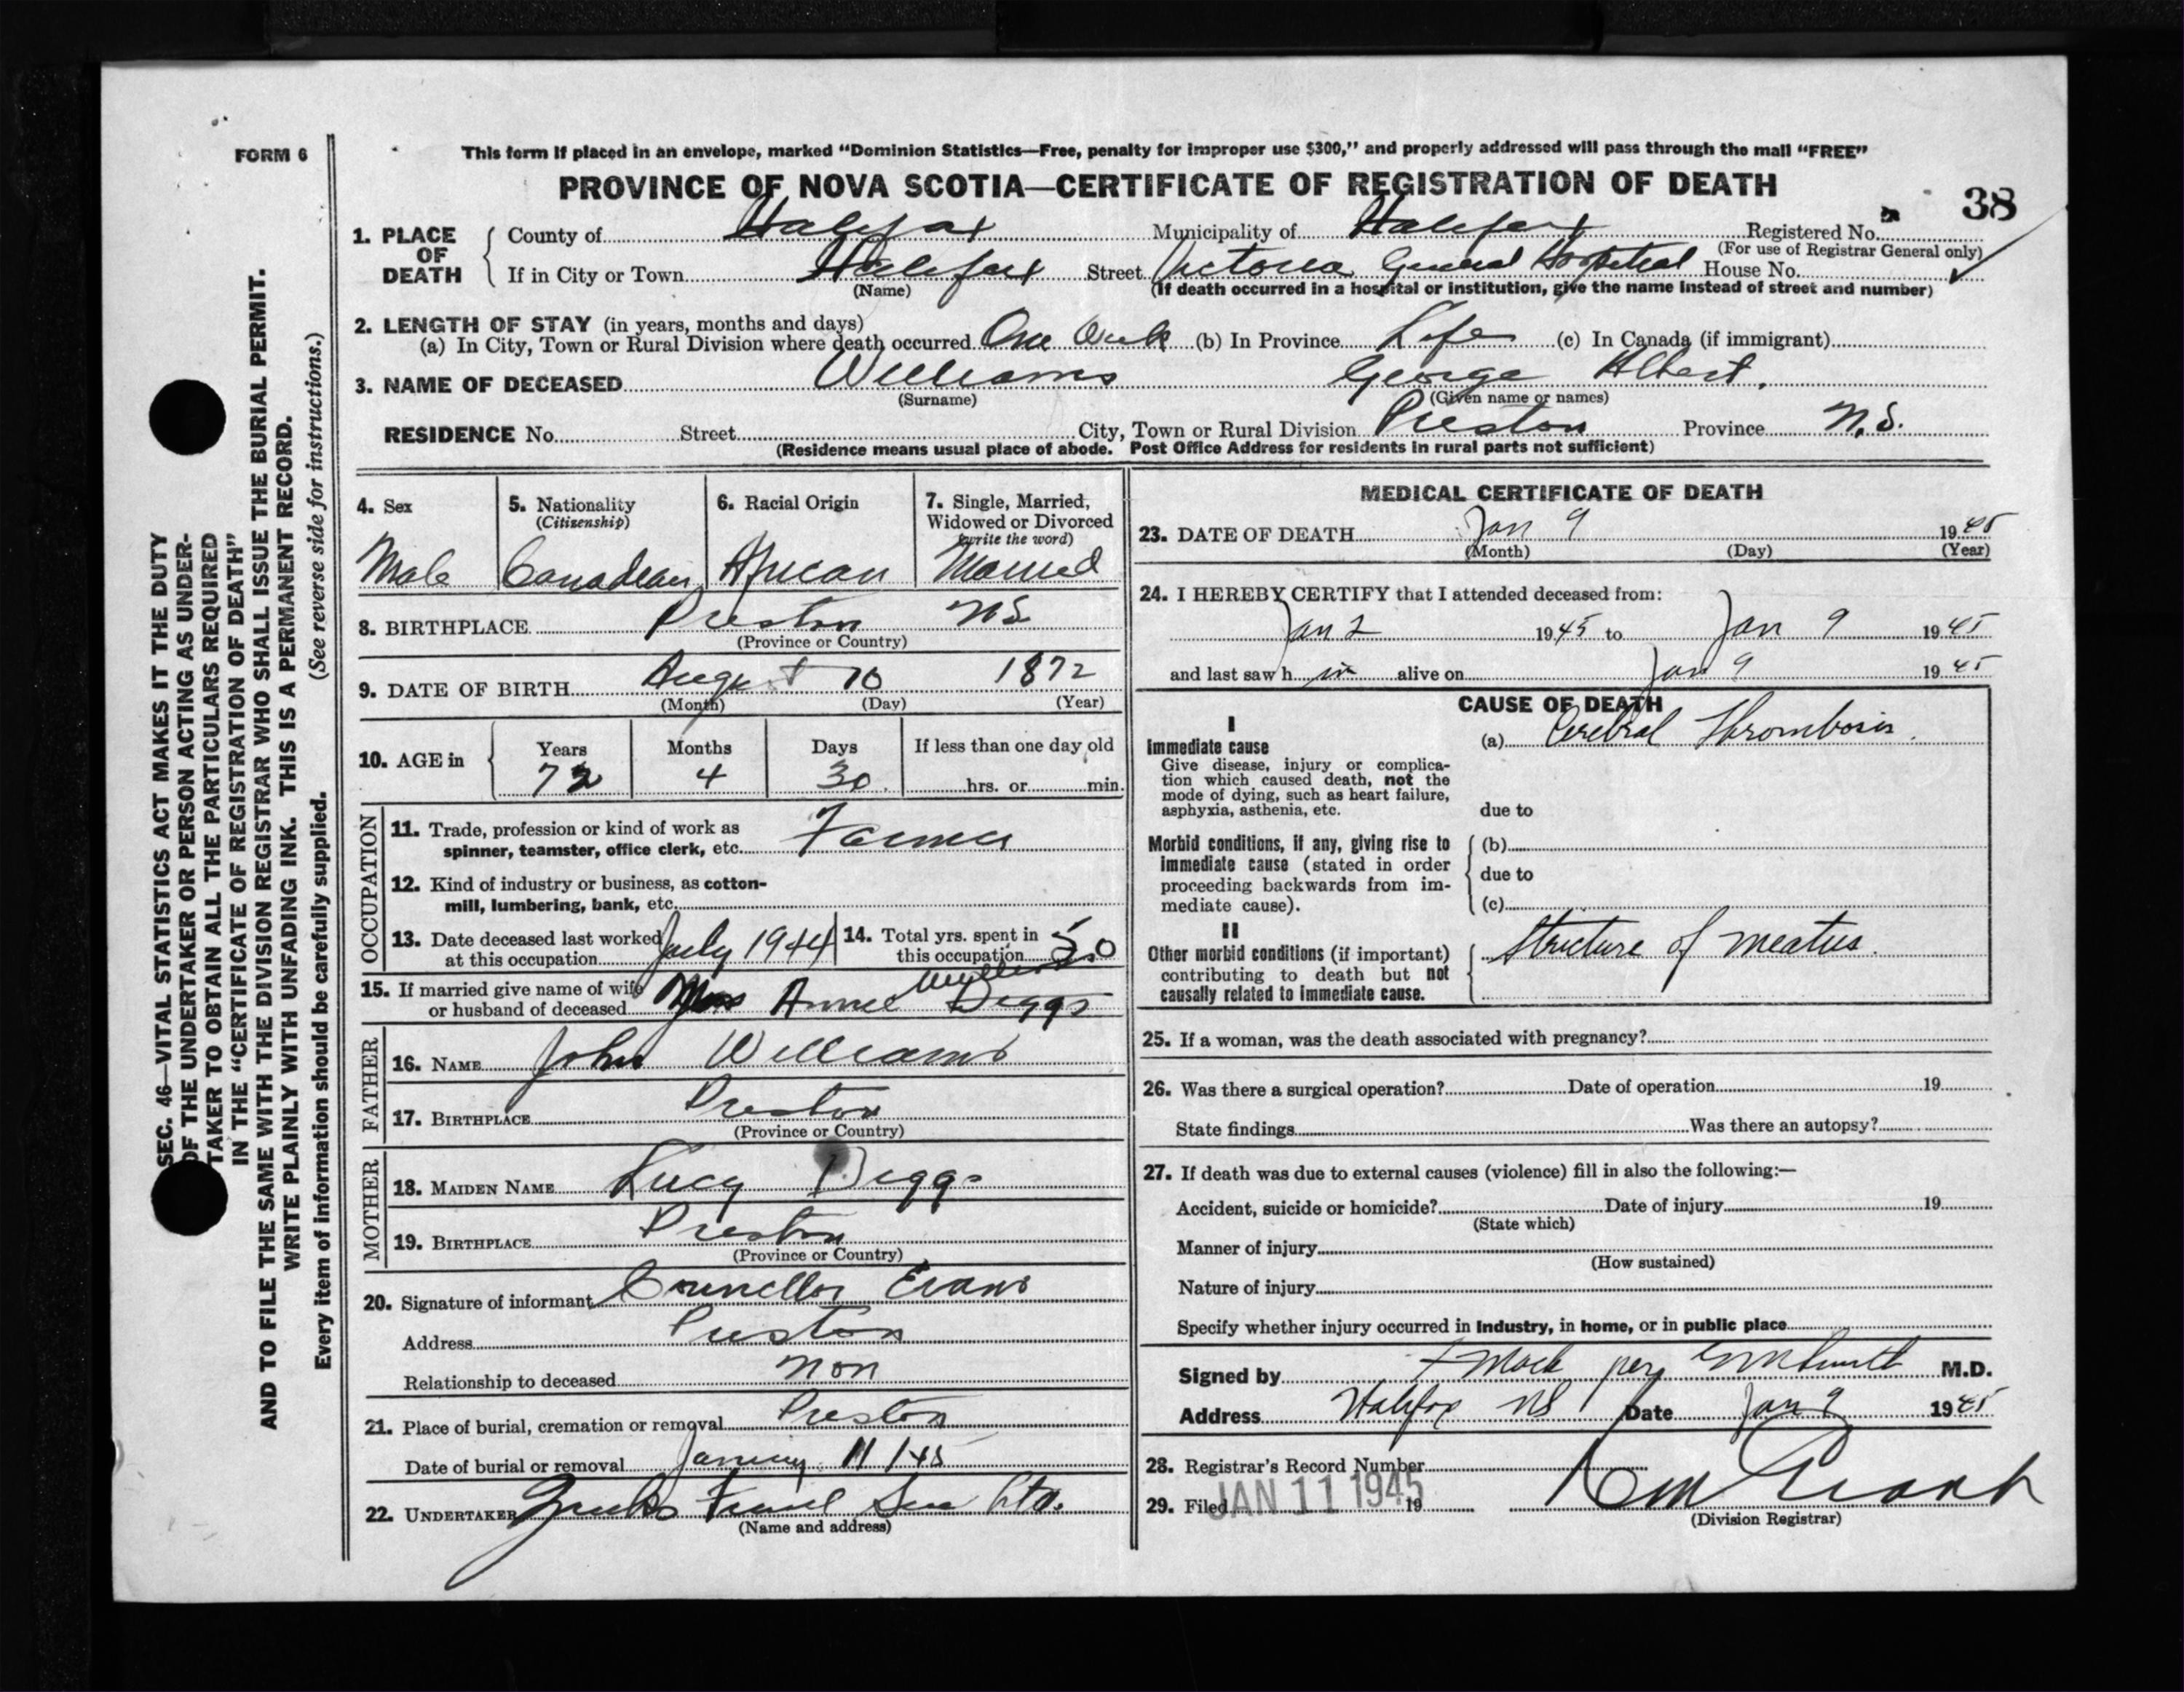 FORM 6
This form if placed in an envelope, marked “Dominion Statistics—Free, penalty for improper use $300,” and properly addressed will pass through the mail “FREE”
PROVINCE OF NOVA SCOTIA—CERTIFICATE OF REGISTRATION OF DEATH
38
1. PLACE OF DEATH
County of Halifax Municipality of Halifax Registered No.
(For use of Registrar General only)
If in City or Town Halifax Street Victoria General Hospital House No.
(Name) (If death occurred in a hospital or institution, give the name instead of street and number)
2. LENGTH OF STAY (in years, months and days)
(a) In City, Town or Rural Division where death occurred One Week (b) In Province Life (c) In Canada (if immigrant)
3. NAME OF DECEASED Williams George Albert.
(Surname) (Given name or names)
RESIDENCE No. Street City, Town or Rural Division Preston Province N.S.
(Residence means usual place of abode. Post Office Address for residents in rural parts not sufficient)
4. Sex
Male
5. Nationality
(Citizenship)
Canadian
6. Racial Origin
African
7. Single, Married,
Widowed or Divorced
(write the word)
Married
8. BIRTHPLACE Preston NS
(Province or Country)
9. DATE OF BIRTH August 10 1872
(Month) (Day) (Year)
10. AGE in
Years Months Days If less than one day old
72 4 30 hrs. or min.
OCCUPATION
11. Trade, profession or kind of work as
spinner, teamster, office clerk, etc. Farmer
12. Kind of industry or business, as cotton-
mill, lumbering, bank, etc.
13. Date deceased last worked
at this occupation July 1944
14. Total yrs. spent in
this occupation 50
15. If married give name of wife
or husband of deceased Annie Diggs
FATHER
16. NAME John Williams
17. BIRTHPLACE Preston
(Province or Country)
MOTHER
18. MAIDEN NAME Lucy Diggs
19. BIRTHPLACE Preston
(Province or Country)
20. Signature of informant Councellor Evans
Address Preston
Relationship to deceased non
21. Place of burial, cremation or removal Preston
Date of burial or removal January 11/45
22. UNDERTAKER
(Name and address)
MEDICAL CERTIFICATE OF DEATH
23. DATE OF DEATH Jan 9 1945
(Month) (Day) (Year)
24. I HEREBY CERTIFY that I attended deceased from:
Jan 2 1945 to Jan 9 1945
and last saw h im alive on Jan 9 1945
CAUSE OF DEATH
I
Immediate cause
Give disease, injury or complica-
tion which caused death, not the
mode of dying, such as heart failure,
asphyxia, asthenia, etc.
(a) Cerebral Thrombosis.
due to
Morbid conditions, if any, giving rise to
immediate cause (stated in order
proceeding backwards from im-
mediate cause).
(b)
due to
(c)
II
Other morbid conditions (if important)
contributing to death but not
causally related to immediate cause.
Stricture of meatus.
25. If a woman, was the death associated with pregnancy?
26. Was there a surgical operation? Date of operation 19
State findings Was there an autopsy?
27. If death was due to external causes (violence) fill in also the following:—
Accident, suicide or homicide? Date of injury 19
(State which)
Manner of injury
(How sustained)
Nature of injury
Specify whether injury occurred in industry, in home, or in public place
Signed by M.D.
Address Halifax NS Date Jan 9 1945
28. Registrar's Record Number
29. Filed JAN 11 1945 19
(Division Registrar)
SEC. 46—VITAL STATISTICS ACT MAKES IT THE DUTY
OF THE UNDERTAKER OR PERSON ACTING AS UNDER-
TAKER TO OBTAIN ALL THE PARTICULARS REQUIRED
IN THE “CERTIFICATE OF REGISTRATION OF DEATH”
AND TO FILE THE SAME WITH THE DIVISION REGISTRAR WHO SHALL ISSUE THE BURIAL PERMIT.
WRITE PLAINLY WITH UNFADING INK. THIS IS A PERMANENT RECORD.
Every item of information should be carefully supplied. (See reverse side for instructions.)